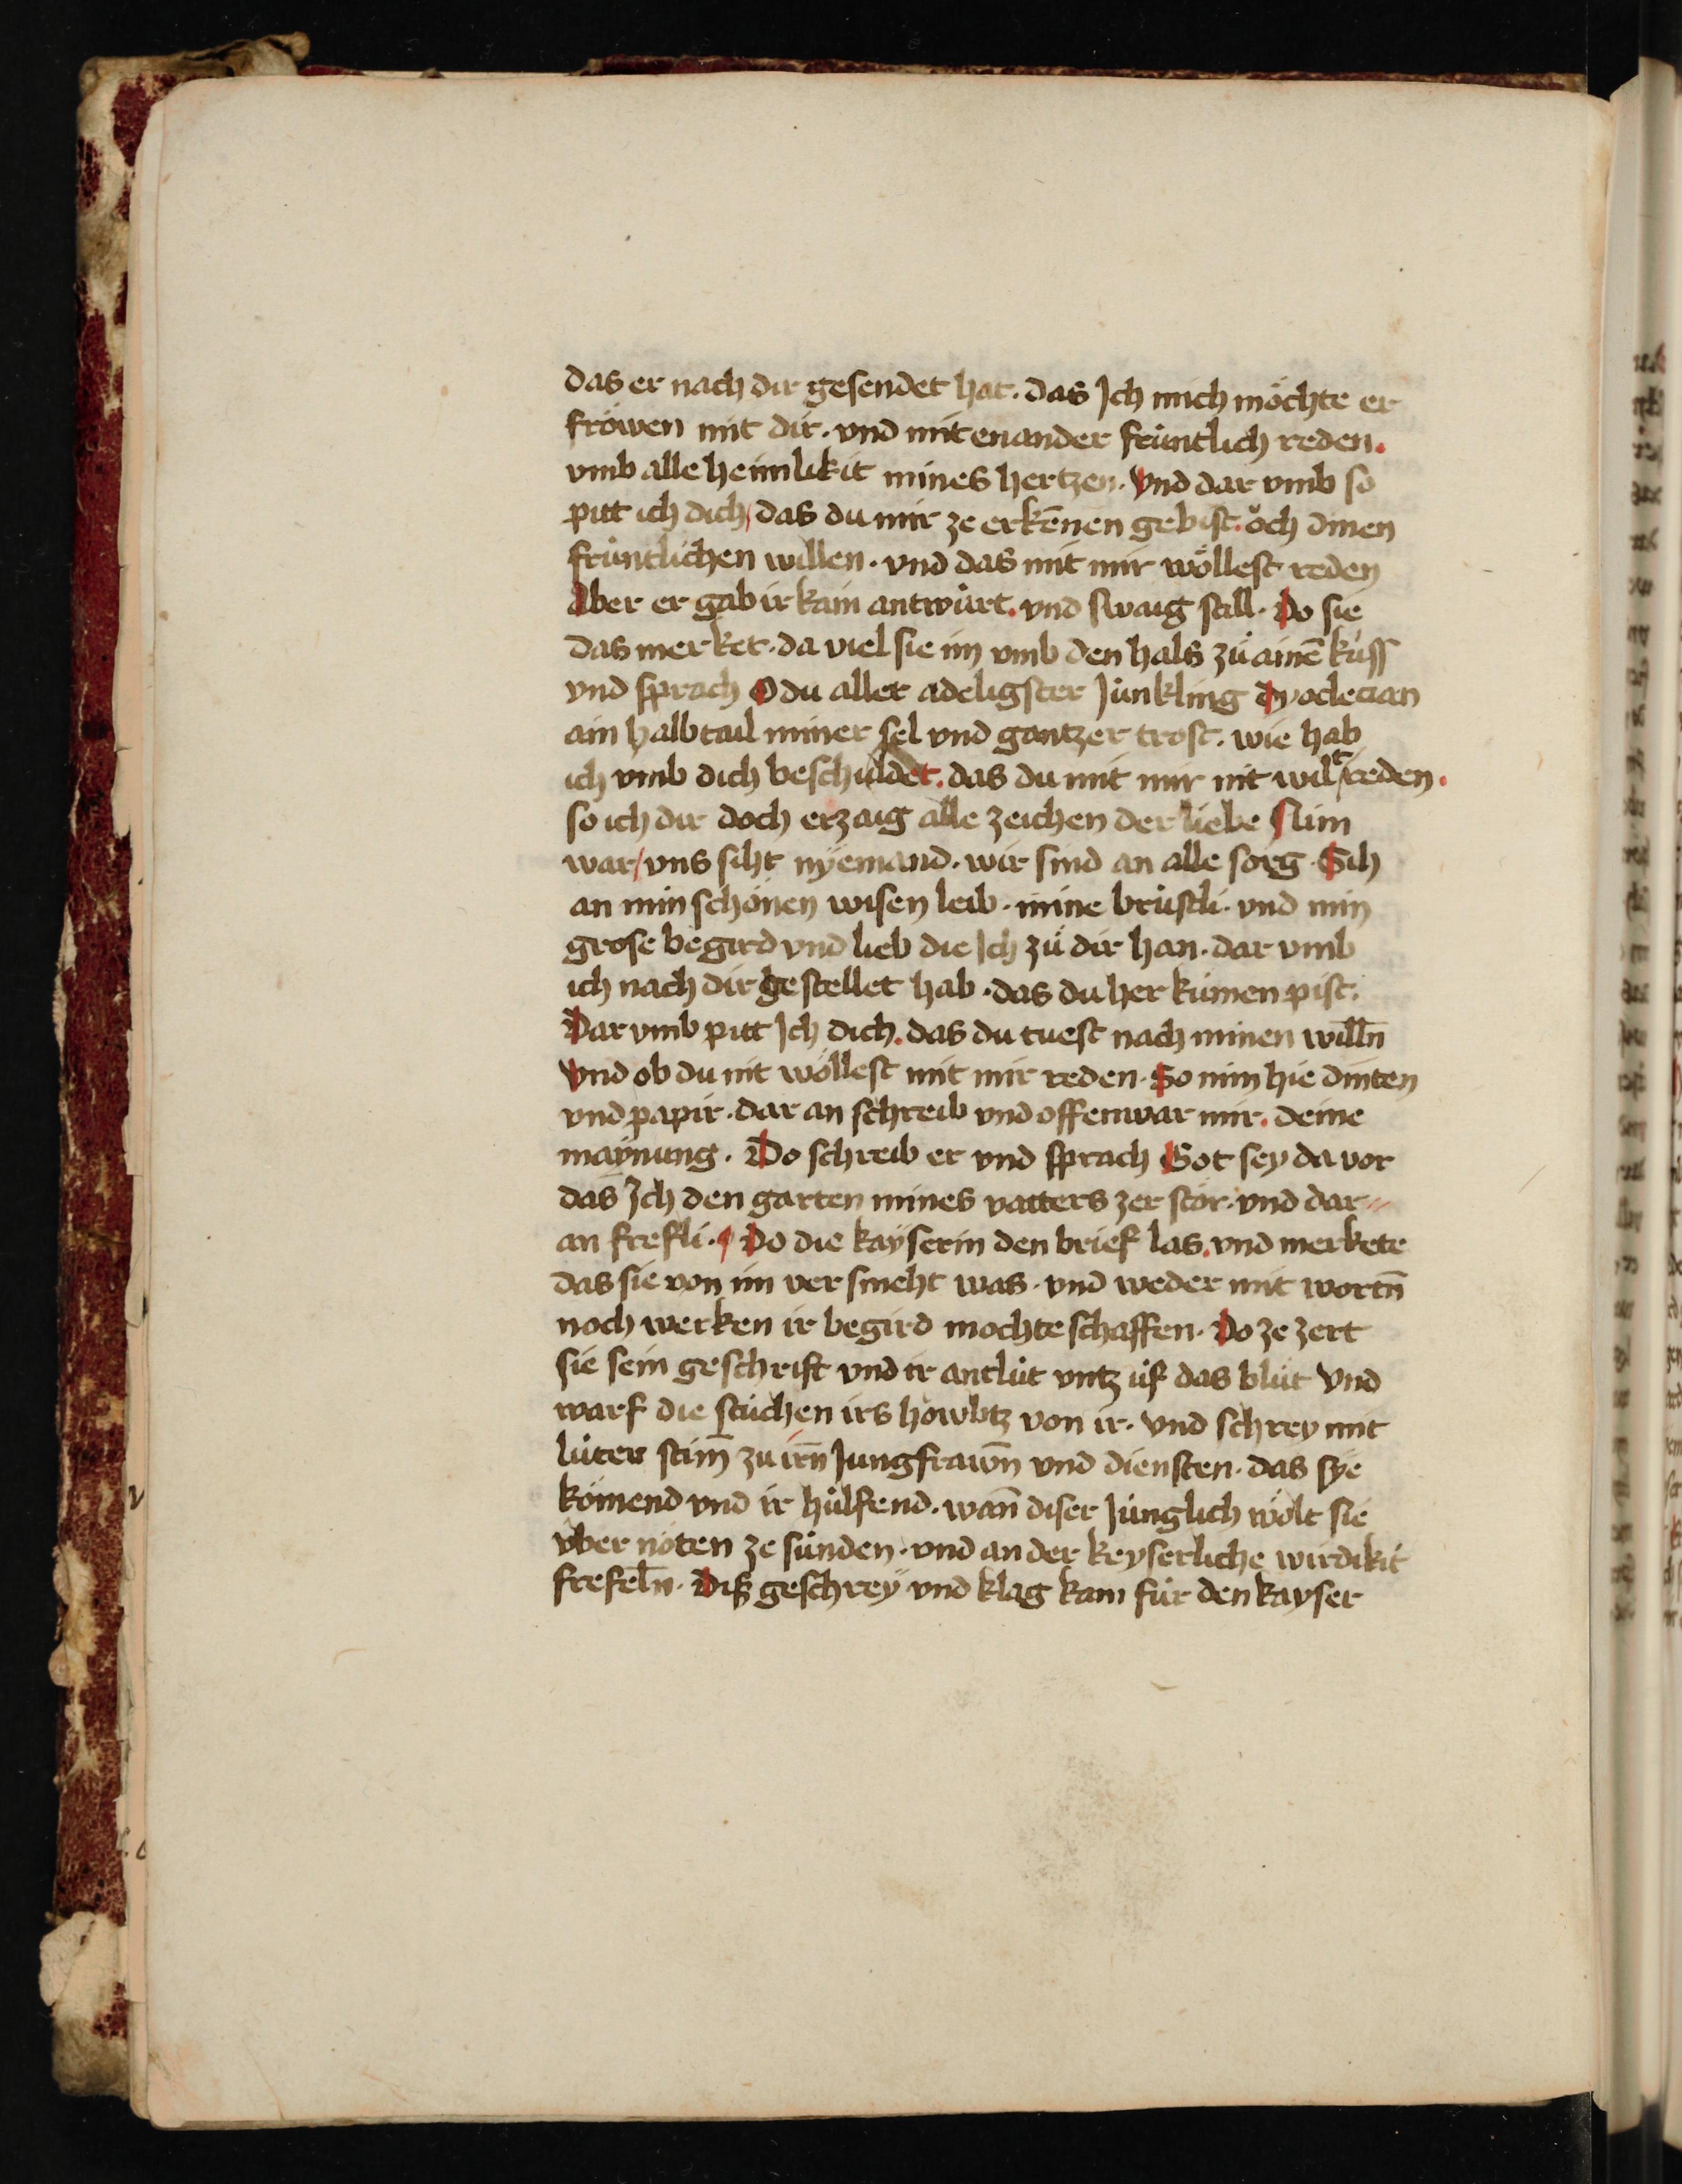 das er nach dir gesendet hat. das Ich mich möchte er
fröwen mit dir. vnd mit enander früntlich reden.
vmb alle heimlikit mines hertzen. vnd dar vmb so
pitt ich dich, das du mir ze erkēnen gebist. öch dinen
früntlichen willen. vnd das mit mir wöllest reden
Aber er gab ir kain antwürt. vnd swaig still. Do sie
das merket. da viel sie im vmb den hals zü ainē kuss
vnd sprach O du aller adeligster Jünkling dyoclecian
ain halb tail miner sel vnd gantzer trost. wie hab
ich vmb dich beschuldet. das du mit mir nit wilt reden.
so ich dir doch erzaig alle zeichen der liebe Nim
war/ vns siht nÿemand. wir sind an alle sorg. Sih
an min schönen wisen leib. mine brüstli. vnd min
grose begird vnd lieb die Ich zü dir han. dar vmb
ich nach dir gestellet hab. das du her kumen pist.
Dar vmb pitt Ich dich. das du tuest nach minen willn̄
vnd ob du nit wöllest mit mir reden. So nim hie dinten
vnd papir. dar an schreib vnd offenwar mir. deine
maynung. Do schreib er vnd sprach Got sey da vor
das Ich den garten mines vatters zer stör. vnd dar
an frefli. Do die kaÿserin den brief las. vnd merkete
das sie von im ver smeht was. vnd weder mit wortn̄
noch werken ir begird mochte schaffen. Do ze zert
sie sein geschrift vnd ir antlüt vntz üf das blüt vnd
warf die stüchen irs howbtz von ir. vnd schrey mit
lüter stim̄ zu irn̄ Jungfrawn̄ vnd diensten. das sye
kömend vnd ir hülfend. wan̄ diser Jünglich wölt sie
vber nöten ze sünden. vnd an der keyserliche wirdikit
frefeln̄. Diß geschreÿ vnd klag kam für den kayser